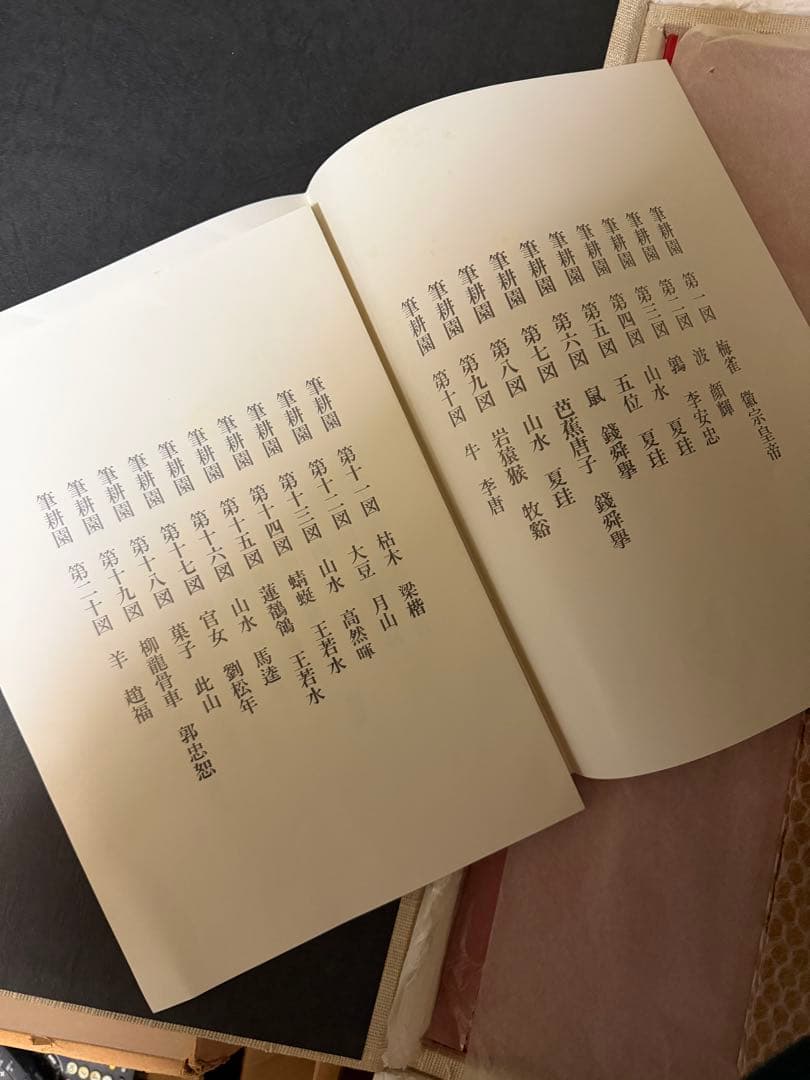 筆耕園 第一図 梅雀 徽宗皇帝
筆耕園 第二図 波 顔輝
筆耕園 第三図 鶉 李安忠
筆耕園 第四図 山水 夏珪
筆耕園 第五図 五位 夏珪
筆耕園 第六図 鼠 錢舜擧
筆耕園 第七図 芭蕉唐子 錢舜擧
筆耕園 第八図 山水 夏珪
筆耕園 第九図 岩猿猴 牧谿
筆耕園 第十図 牛 李唐
筆耕園 第十一図 枯木 梁楷
筆耕園 第十二図 大豆 月山
筆耕園 第十三図 山水 高然暉
筆耕園 第十四図 蜻蜓 王若水
筆耕園 第十五図 蓮鶺鴒 王若水
筆耕園 第十六図 山水 馬逵
筆耕園 第十七図 官女 劉松年
筆耕園 第十八図 菓子 此山
筆耕園 第十九図 柳龍骨車 郭忠恕
筆耕園 第二十図 羊 趙福